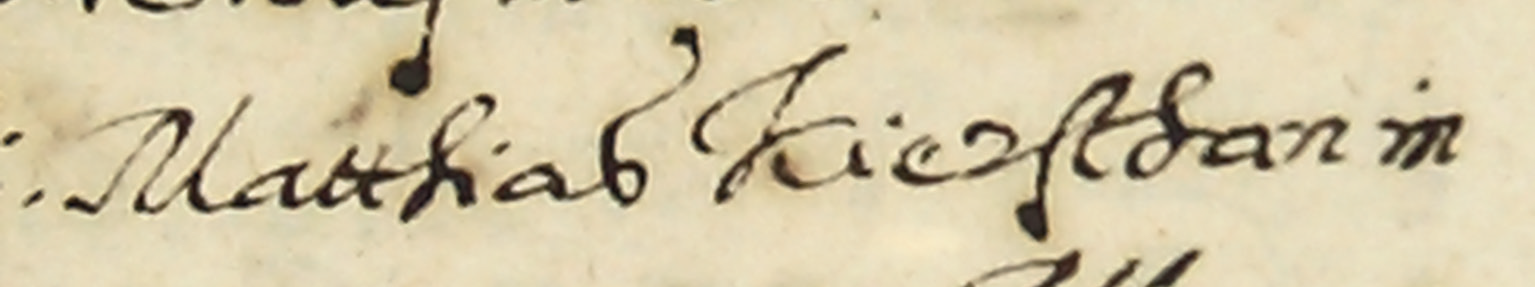 Matthias Kiersthan in